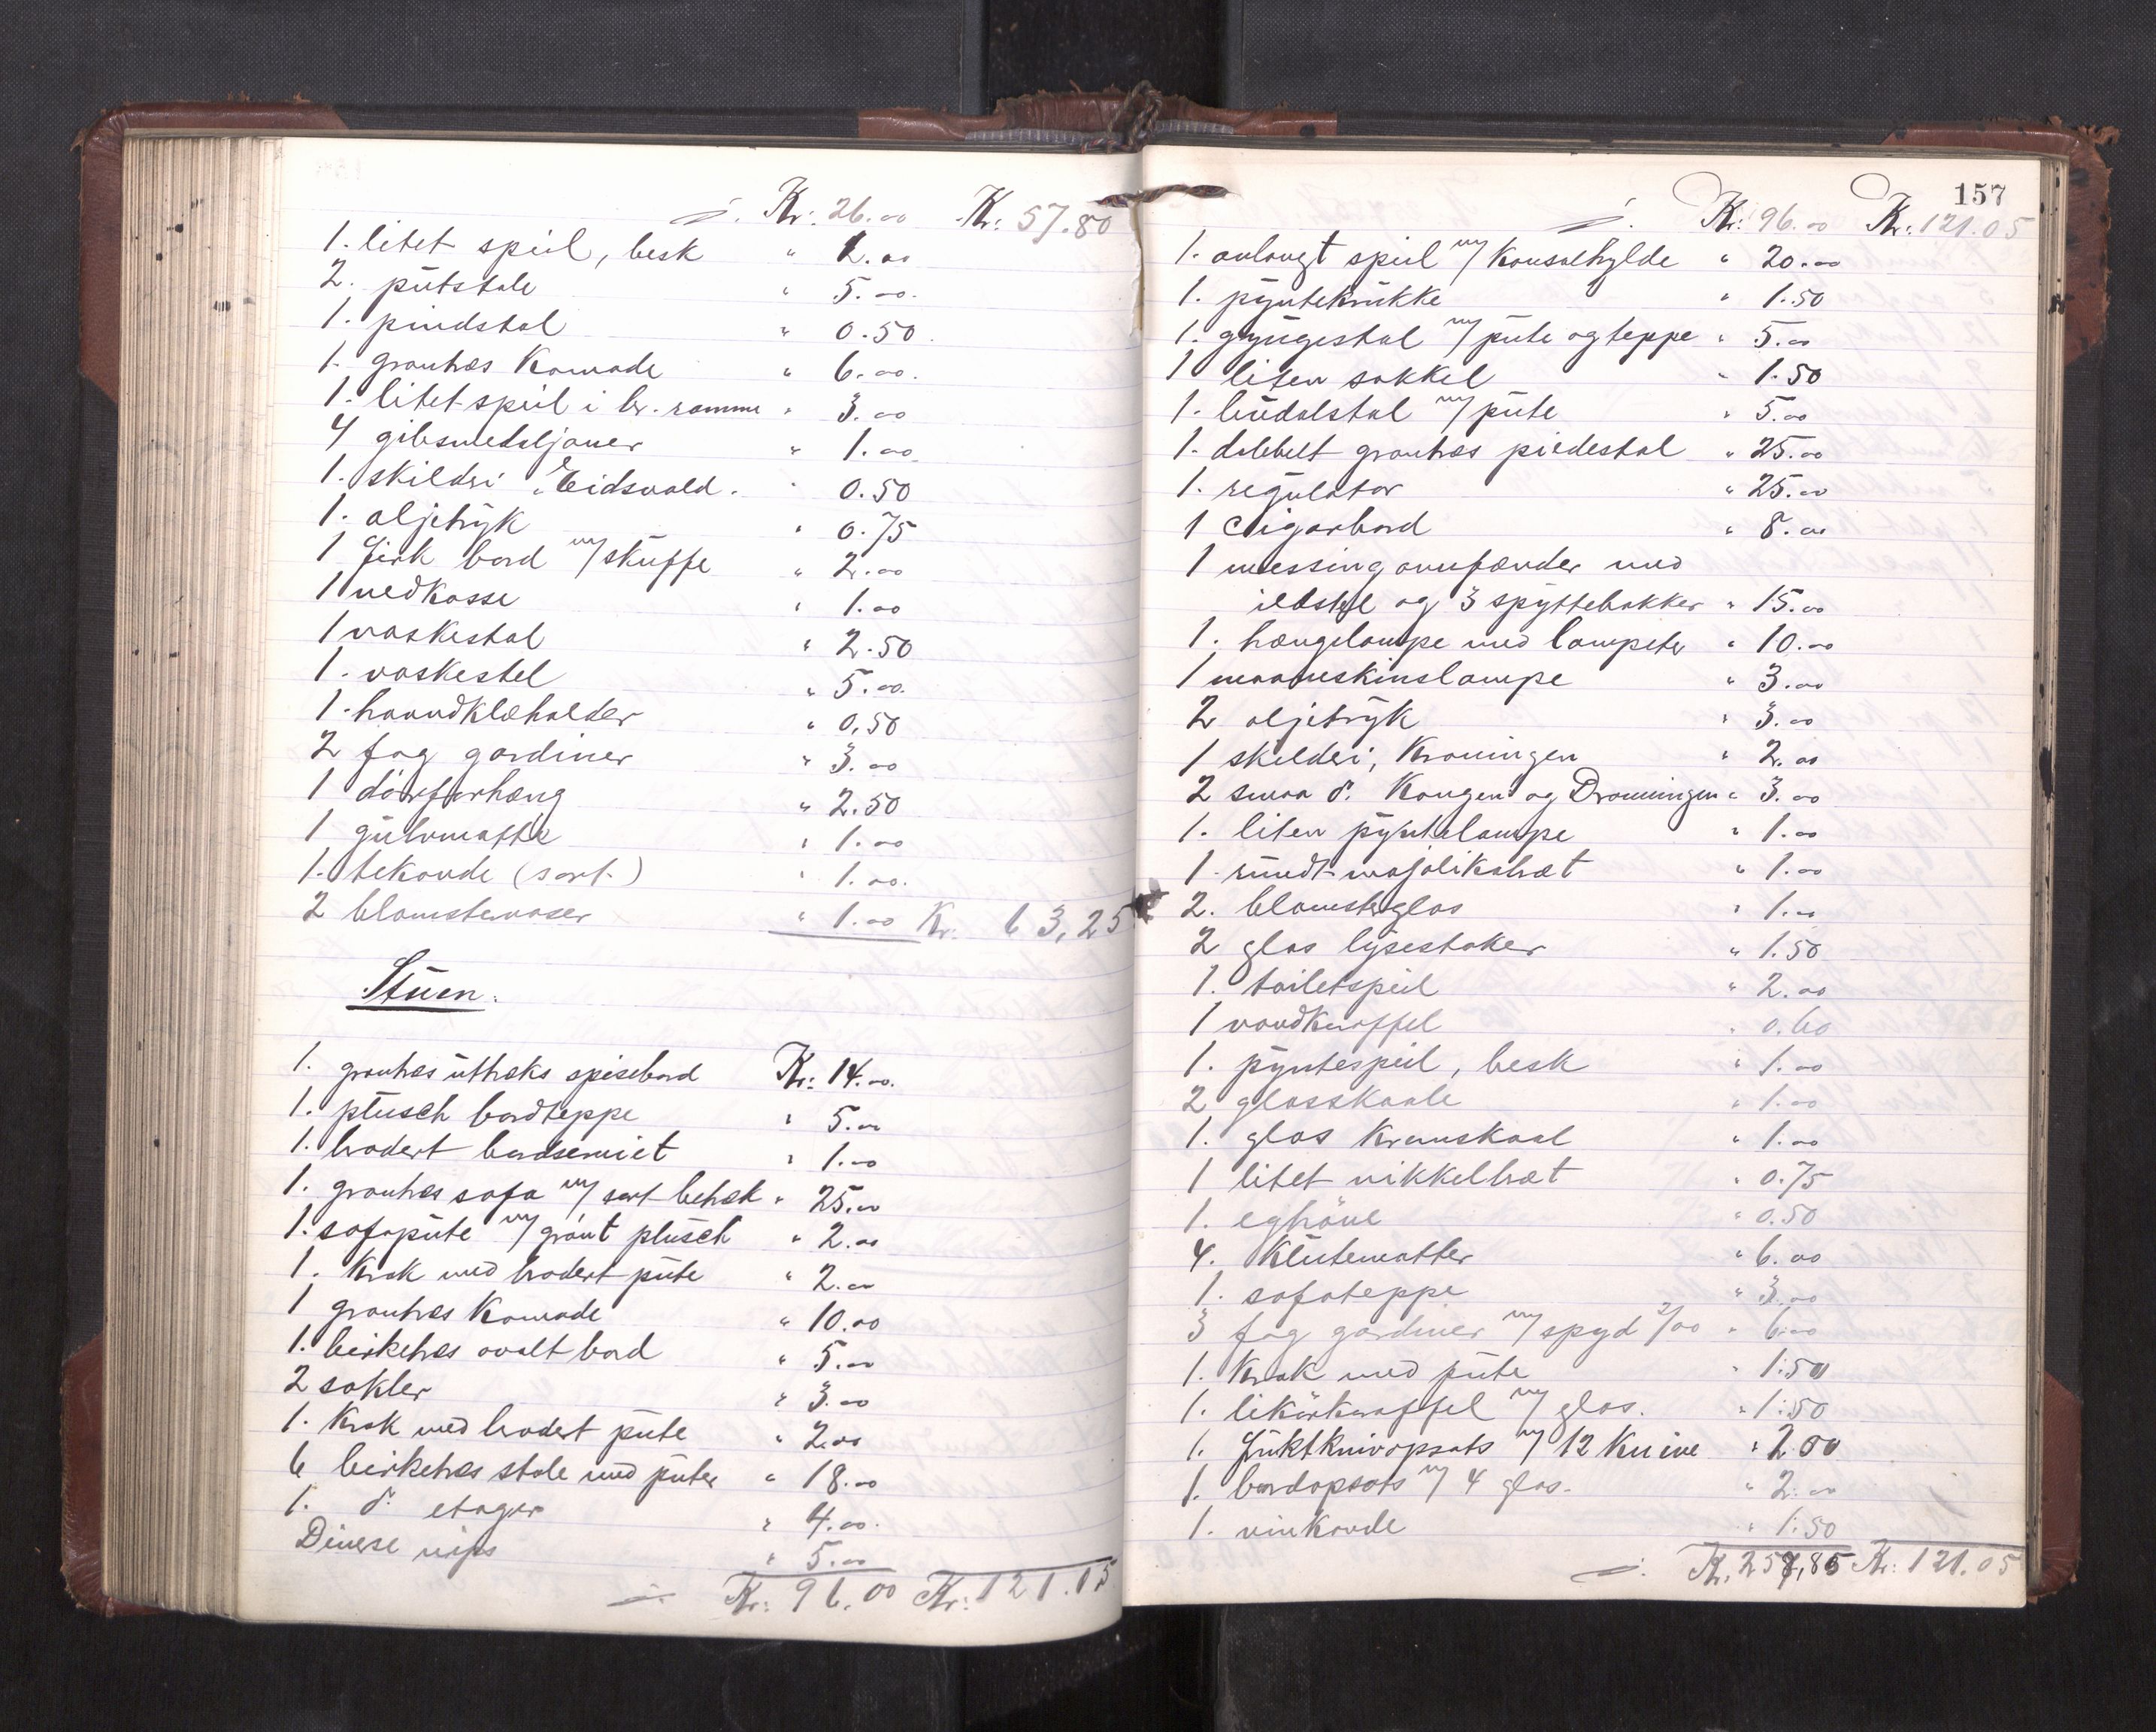 ÷. Kr: 26.00 Kr: 57.80
1. litet speil, besk " 1.00
2. putstole " 5.00.
1. pindstol " 0.50.
1. grantræs Komode " 6.00.
1. litet speil i br. ramme " 3.00
4 gibsmedaljoner " 1.00
1. skilderi "Eidsvold. " 0.50
1. oljetryk " 0.75
1 firk bord m/ skuffe " 2.00
1 vedkasse " 1.00
1 vaskestol " 2.50
1. vaskestel " 5.00.
1. haandklæholder " 0,50
2 fag gardiner " 3.00
1 dörforhæng " 2.50
1 gulvmatte " 1.00
1. tekande (sort.) " 1.00.
2 blomstervaser " 1.00 Kr. 63,25
Stuen.
1. grantræs uttræks spisebord Kr: 14.00.
1. plusch bordteppe " 5.00
1. brodert bordserviet " 1.00
1. grantræs sofa m/ sort betræk " 25.00
1. sofapute m/ grönt plusch " 2.00
1. Krak med brodert pute " 2.00
1 grantræs Komode " 10.00
1. birketræs ovalt bord " 5.00
2 sokler " 3.00
1. Krak med brodert pute " 2.00
6 birketræs stole med puter " 18.00
1. do etager " 4.00.
Diverse nips " 5.00
÷. Kr: 96.00 Kr: 121.05
157
÷. Kr: 96.00 Kr: 121.05
1. avlangt speil m/ Konsolhylde " 20.00
1. pyntekrukke " 1.50
1. gyngestol m/ pute og teppe " 5.00
1 liten sokkel " 1.50
1. lindalstol m/ pute " 5.00
1. dobbelt grantræs piedestal " 25.00
1. regulator " 25.00
1 Cigarbord " 8.00
1 messing ovnsfænder med
ildstel og 3 spyttebakker " 15.00
1. hængelampe med lampeter " 10.00
1 maaneskinslampe " 3.00
2 oljetryk " 3.00
1 skilderi, Kroningen " 2.00
2 smaa do. Kongen og Dronningen " 3.00
1. liten pyntelampe " 1.00
1. rundt majolikabræt " 1.00
2. blomsterglas " 1.00
2 glas lysestaker " 1.50
1. toiletspeil " 2.00
1 vandkaraffel " 0.60
1. pyntespeil, besk " 1.00
2 glasskaale " 1.00
1. glas Kremskaal " 1.00
1 litet nikkelbræt " 0.75
1. eghöne " 0.50
4. Klutematter " 6.00
1. sofateppe " 3.00
3 fag gardiner m/ spyd 2/00 " 6.00
1. Krak med pute " 1.50
1. likörkaraffel m/ glas. " 1.50
1. fruktknivopsats m/ 12 Knive " 2.00
1. bordopsats m/ 4 glas. " 2.00
1. vinkande " 1.50
÷. Kr. 257,85 Kr: 121.05